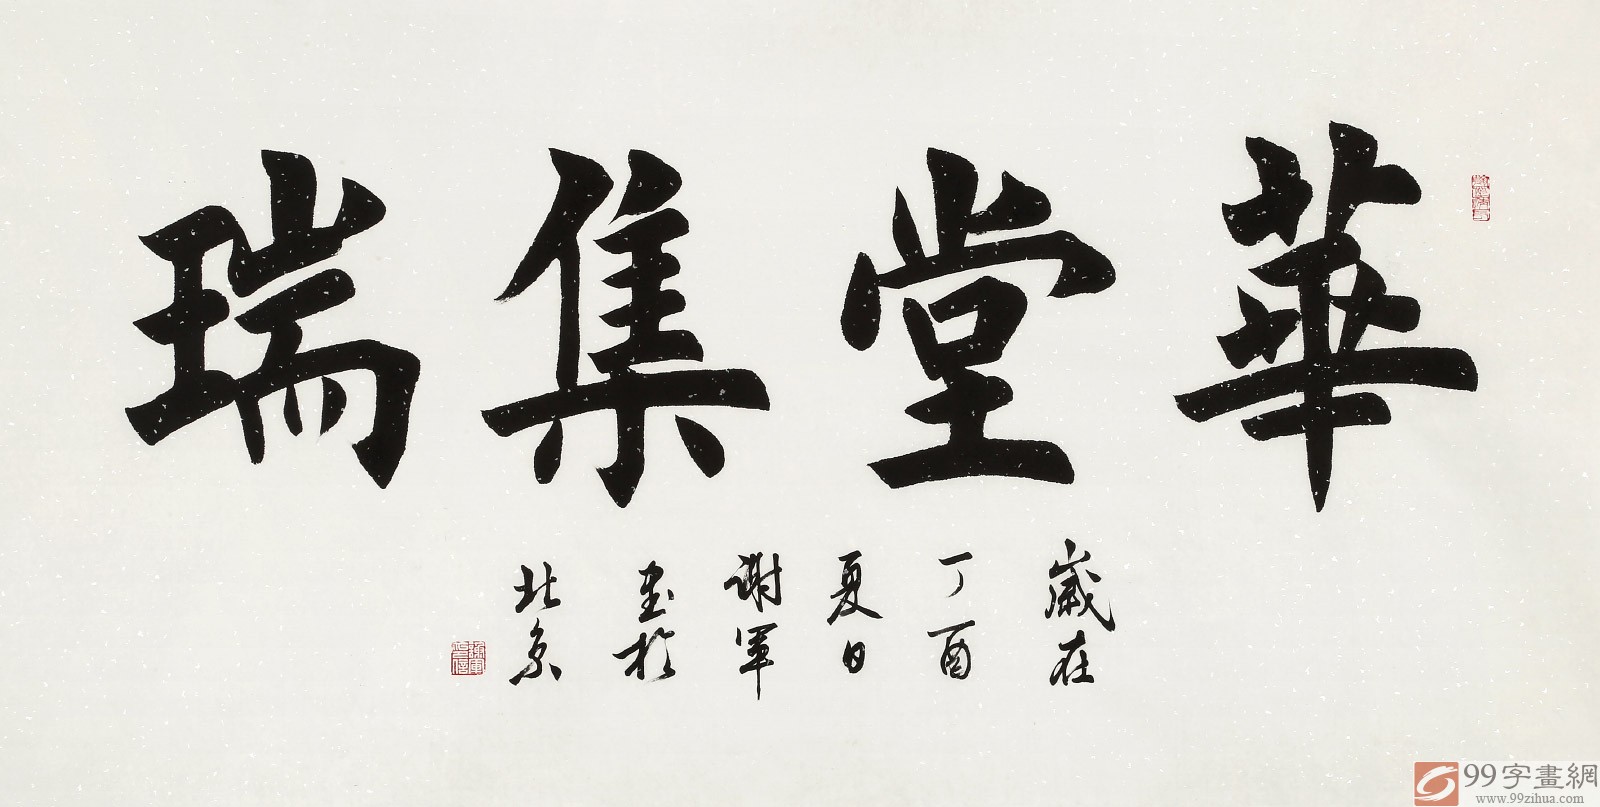 華堂集瑞
歲在
丁酉
夏日
謝軍
書於
北京
99字畫網
www.99zihua.com